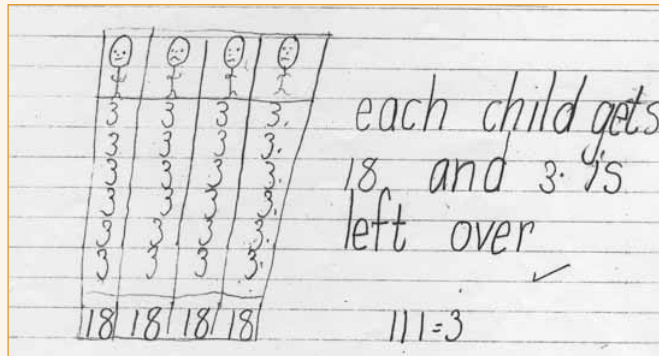 3 3 3 3.
3 3 3 3.
3 3 3 3.
3 3 3 3.
3 3 3 3.
3 3 3 3.
18 18 18 18
each child gets
18 and 3 is
left over
111=3